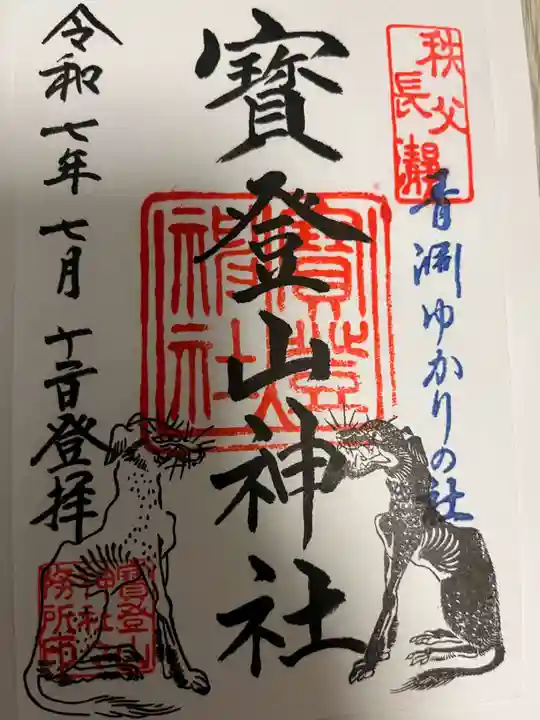 秩父
長瀞
青淵ゆかりの社
寳登山神社
寳登山
神社
令和七年七月十二日登拝
寳登山
神社社
務所印